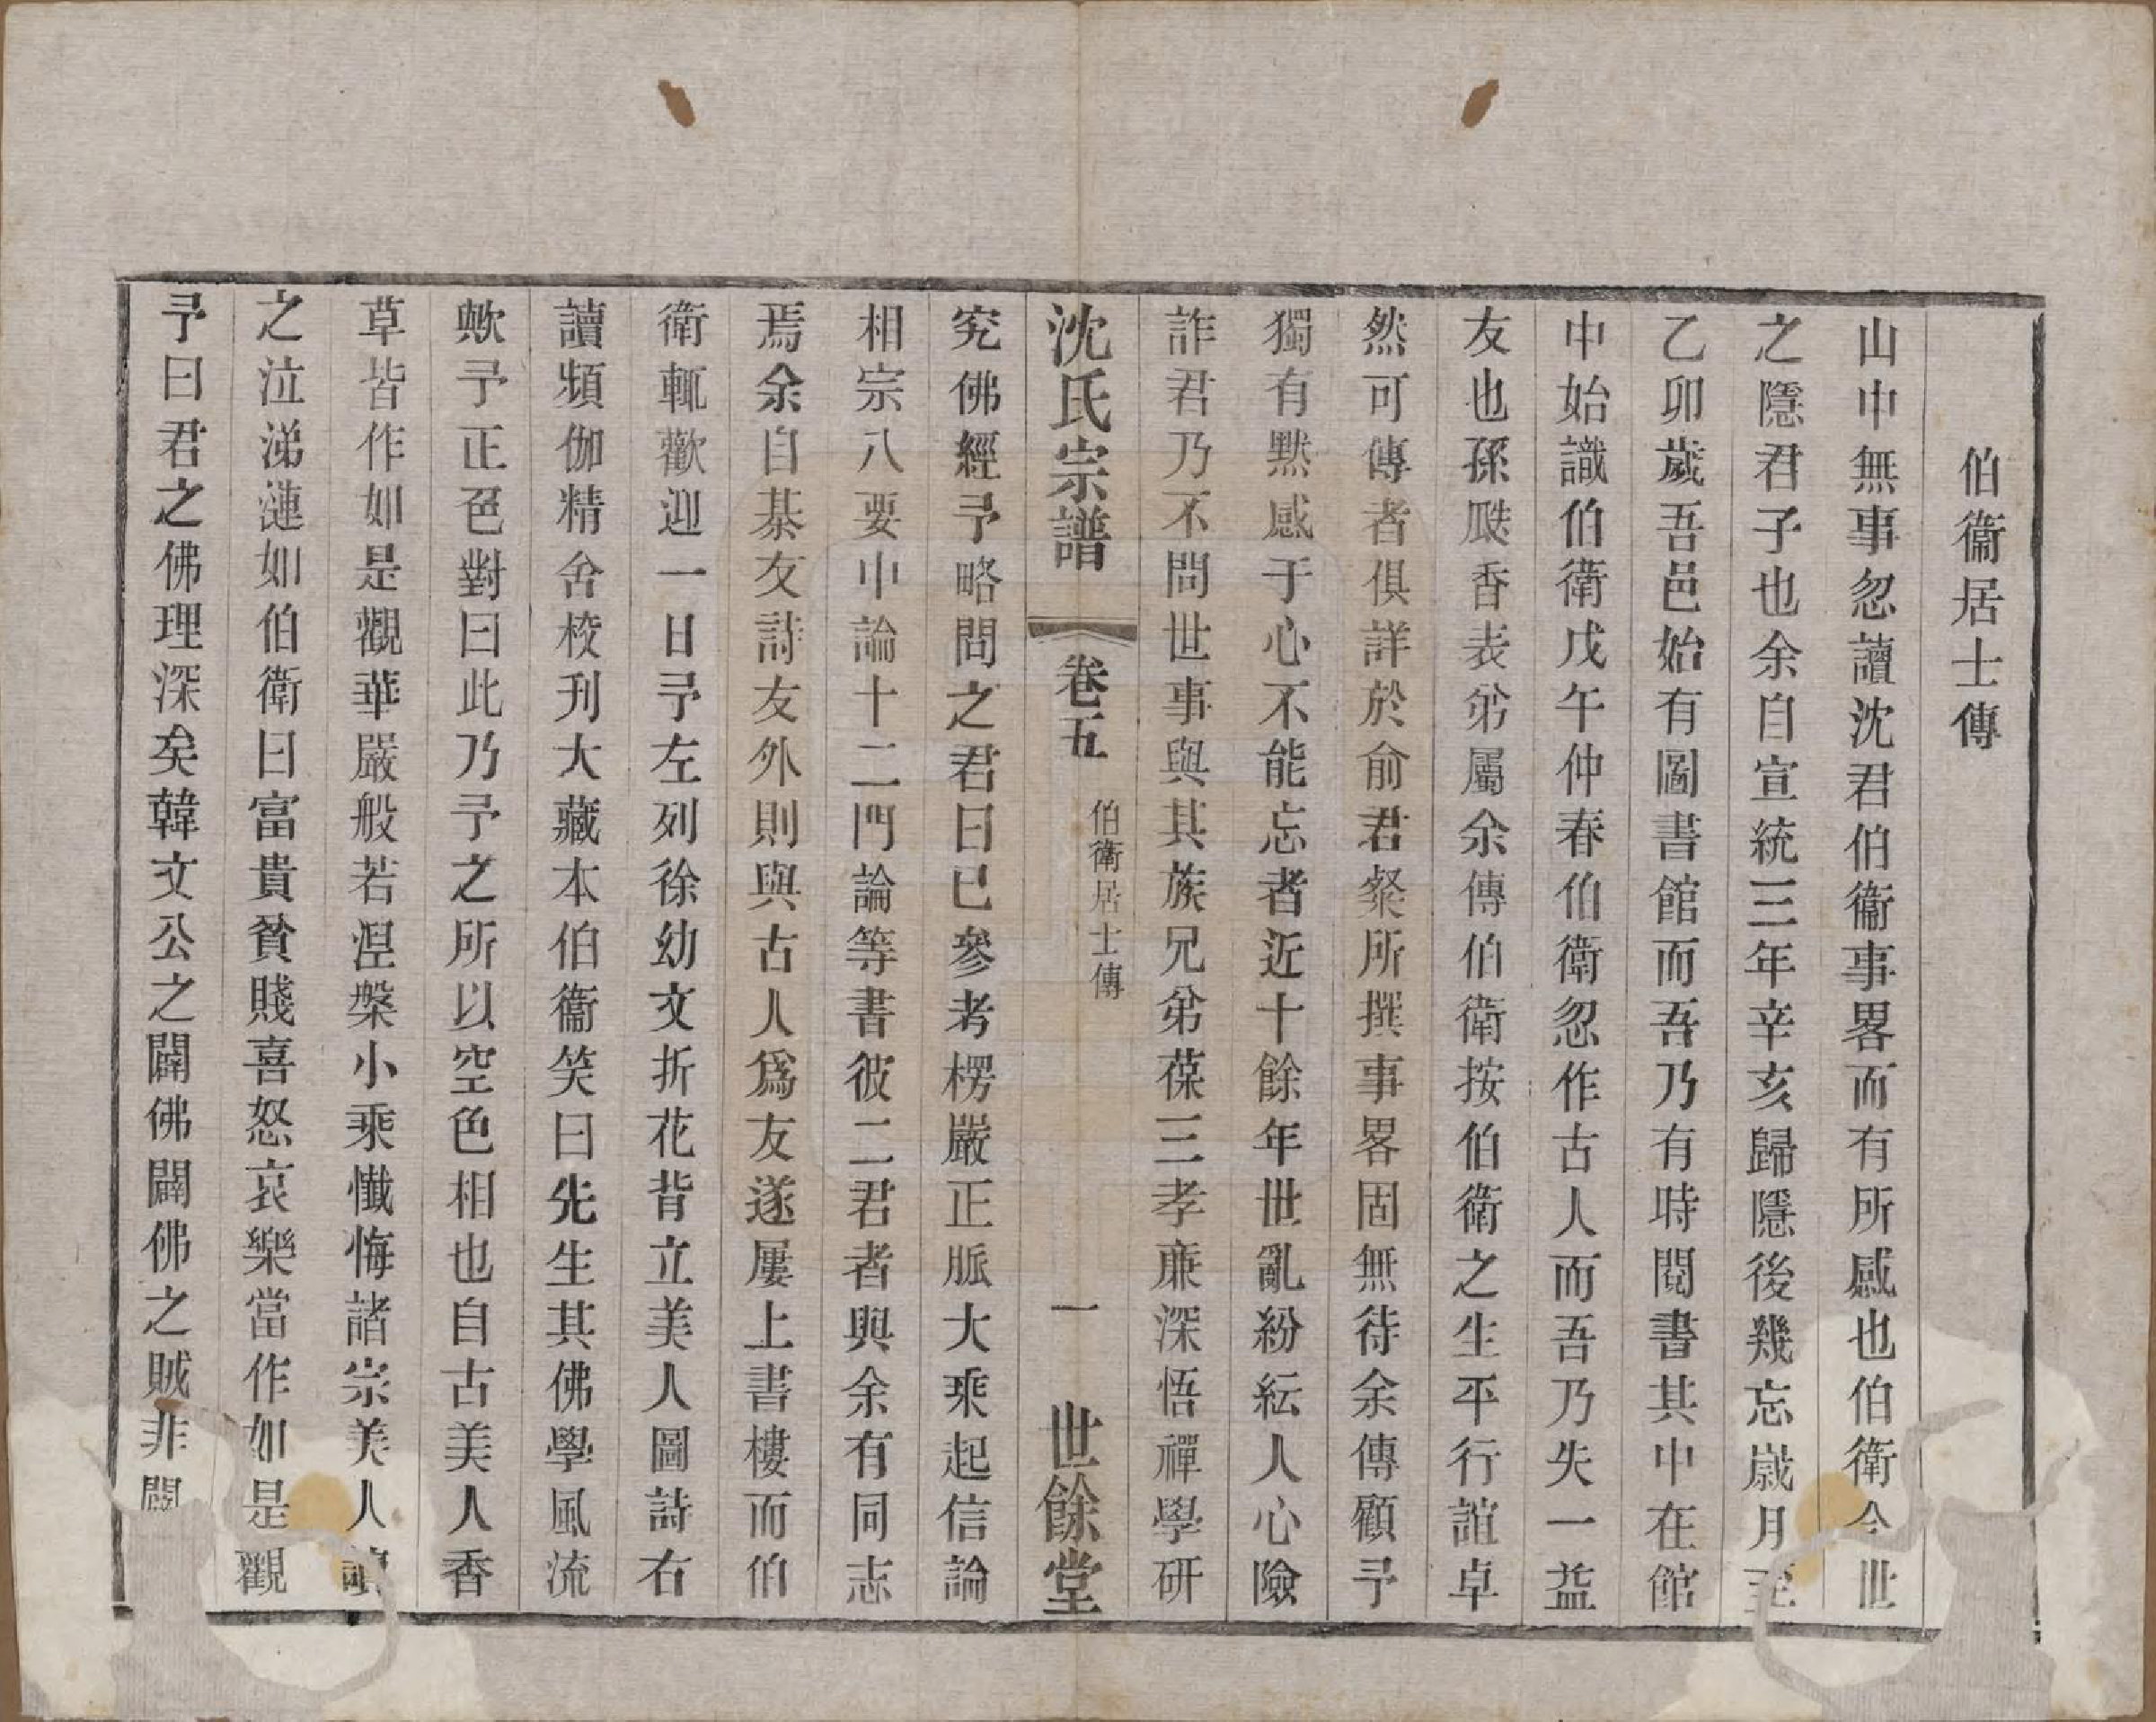 伯衞居士傳
山中無事忽讀沈君伯衞事畧而有所感也伯衛今世
之隱君子也余自宣統三年辛亥歸隱後幾忘歲月至
乙卯歲吾邑始有圖書館而吾乃有時閱書其中在館
中始識伯衛戊午仲春伯衛忽作古人而吾乃失一益
友也孫颷香表弟屬余傳伯衛按伯衛之生平行誼卓
然可傳者俱詳於俞君粲所撰事畧固無待余傳顧予
獨有默感于心不能忘者近十餘年世亂紛紜人心險
詐君乃不問世事與其族兄弟葆三孝廉深悟禪學研
沈氏宗譜
卷五
伯衛居士傳
一
世餘堂
究佛經予略問之君曰已參考楞嚴正脈大乘起信論
相宗八要中論十二門論等書彼二君者與余有同志
焉余自棊友詩友外則與古人爲友遂屢上書樓而伯
衛輒歡迎一日予左列徐幼文折花背立美人圖詩右
讀頻伽精舍校刊大藏本伯衞笑曰先生其佛學風流
歟予正色對曰此乃予之所以空色相也自古美人香
草皆作如是觀華嚴般若涅槃小乘懺悔諸宗美人讀
之泣涕漣如伯衛曰富貴貧賤喜怒哀樂當作如是觀
予曰君之佛理深矣韓文公之闢佛闢佛之賊非闢